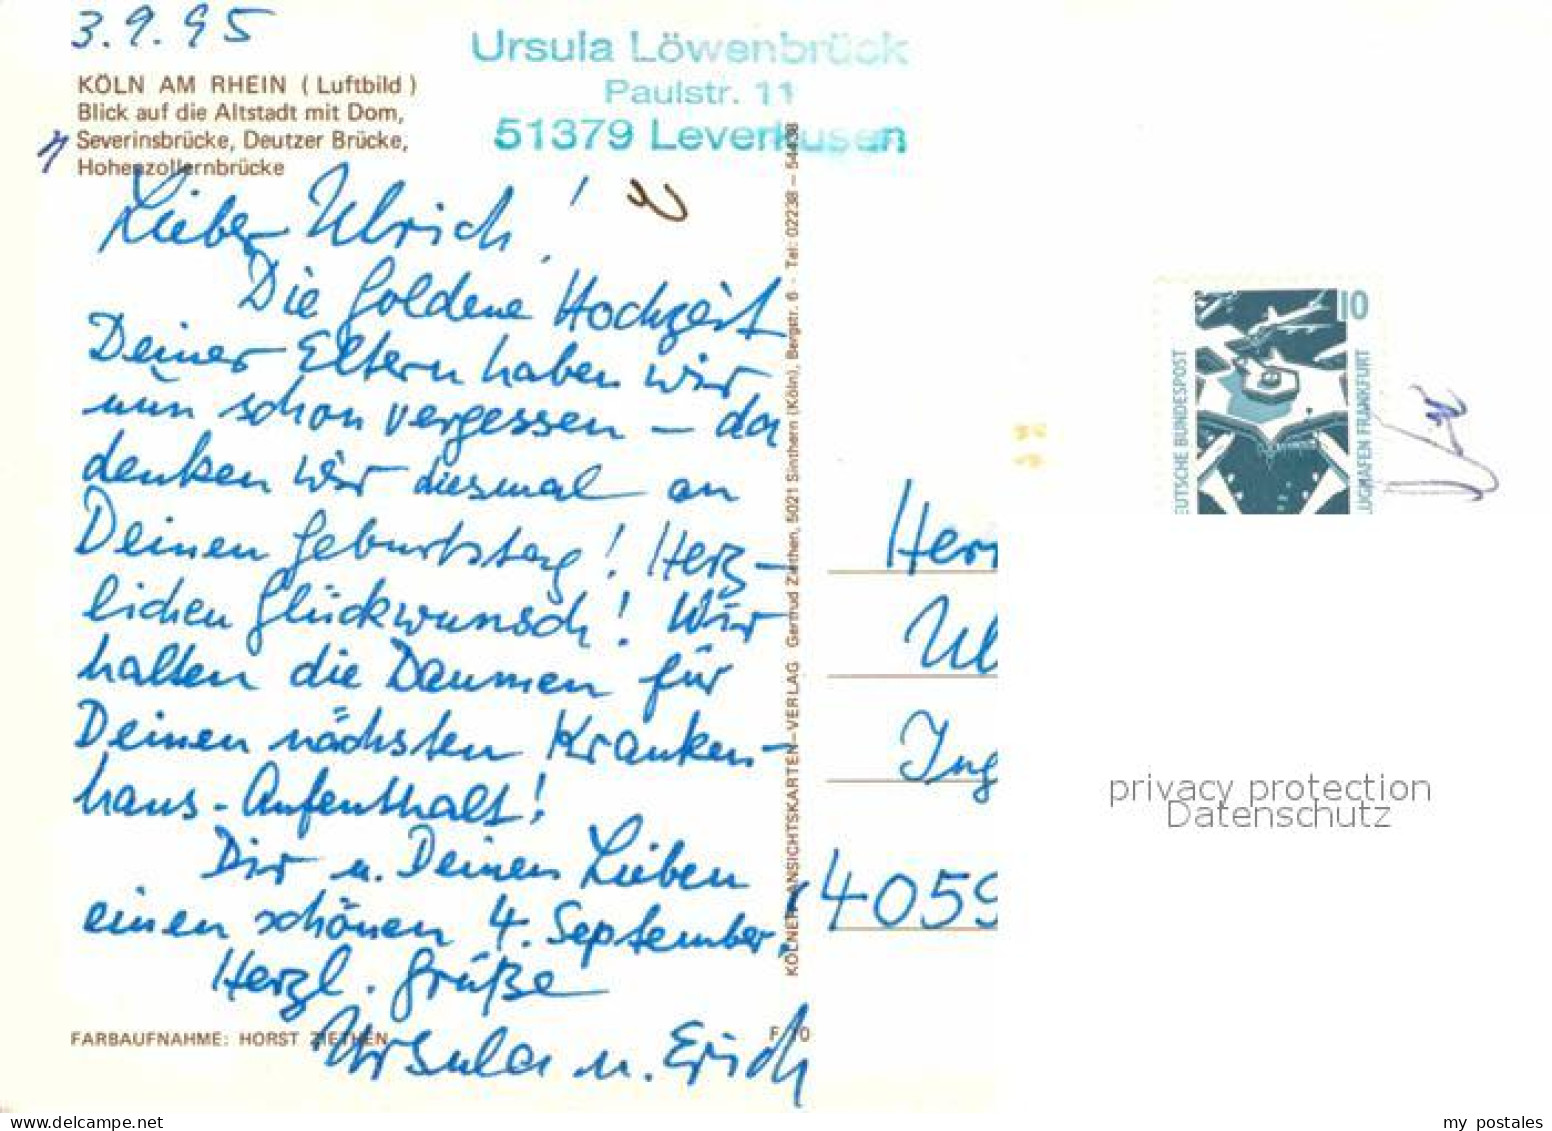 3.9.95
Ursula Löwenbrück
Paulstr. 11
51379 Leverkusen
KÖLN AM RHEIN ( Luftbild )
Blick auf die Altstadt mit Dom,
Severinsbrücke, Deutzer Brücke,
Hohenzollernbrücke
Lieber Ulrich!
Die Goldene Hochzeit
Deiner Eltern haben wir
nun schon vergessen – da
denken wir diesmal an
Deinen Geburtstag! Herz-
lichen Glückwunsch! Wir
halten die Daumen für
Deinen nächsten Kranken-
haus-Aufenthalt!
Dir u. Deinen Lieben
einen schönen 4. September.
Herzl. Grüße
Ursula u. Erich
FARBAUFNAHME: HORST ZIETHEN
F 10
KÖLNER ANSICHTSKARTEN-VERLAG Gertrud Ziethen, 5021 Sinthern (Köln), Bergstr. 6 - Tel: 02238 – 54438
Herr
Ul
Ing
4059
10
EUTSCHE BUNDESPOST
LUGHAFEN FRANKFURT
privacy protection
Datenschutz
my postales